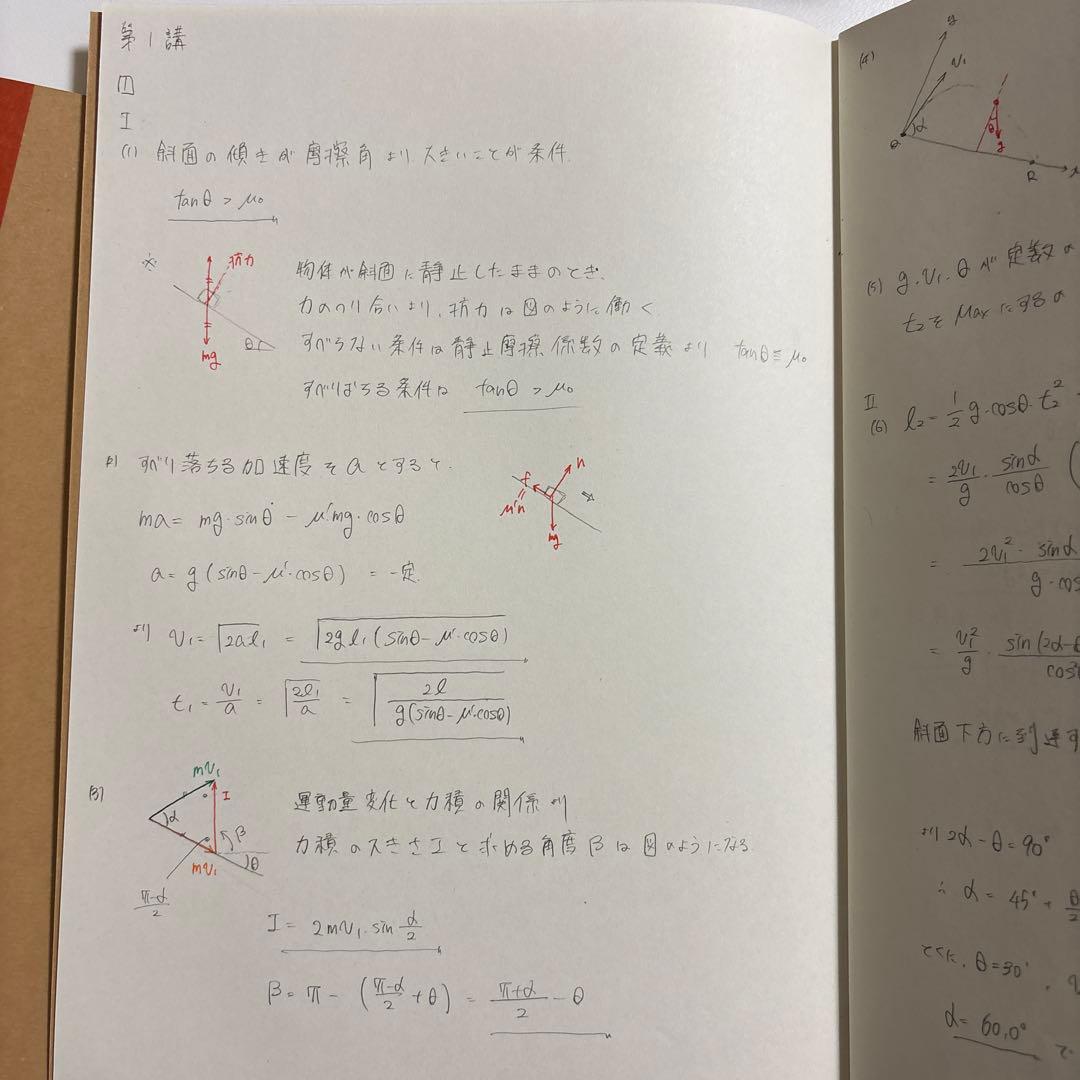 第1講
1
I
(1) 斜面の傾きが摩擦角より大きいことが条件.
tanθ > μ₀
※
抗力
mg
θ
物体が斜面に静止したままのとき.
力のつり合いより, 抗力は図のように働く.
すべらない条件は静止摩擦係数の定義より tanθ ≦ μ₀
すべりはじる条件は tanθ > μ₀
(2) すべり落ちる加速度をaとすると.
ma = mg・sinθ - μ'mg・cosθ
a = g(sinθ - μ'・cosθ) = 一定.
n
f
μ'n
mg
より v₁ = √2al₁ = √2gl₁(sinθ - μ'・cosθ)
t₁ = v₁/a = √2l₁/a = √2l/g(sinθ - μ'・cosθ)
(3)
mv₁
I
α
β
θ
mv₁
π-α/2
運動量変化と力積の関係より
力積の大きさIと求める角度βは図のようになる.
I = 2mv₁・sin α/2
β = π - (π-α/2 + θ) = π+α/2 - θ
(4)
y
v₁
α
O
θ
g
R
(5) g, v₁, θが定数の
t₂をMaxにするの
II
(6) l₂ = 1/2 g・cosθ・t₂²
= 2v₁/g・sinα/cosθ (
= 2v₁²・sinα/g・cos
= v₁²/g・sin(2α-θ/cos
斜面下方に到達す
より 2α - θ = 90°
∴ α = 45° + θ/2
とくに, θ = 30°,
α = 60.0° で